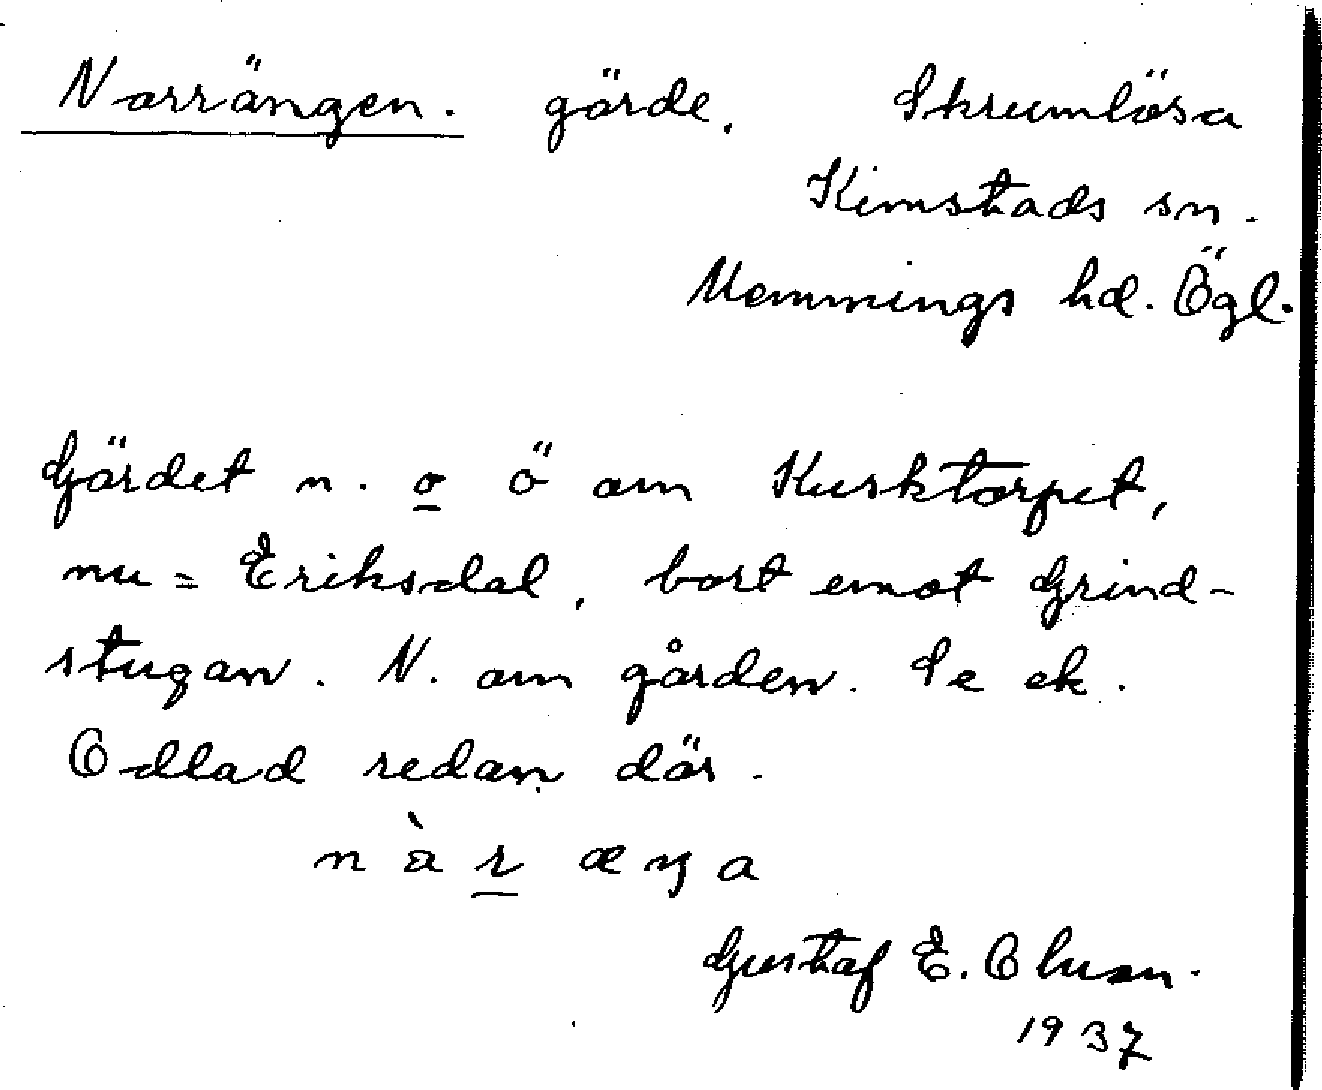 Norrängen. gärde. Skrumlösa
Kimstads sn.
Memmings hd. Ögl.
Gärdet n. o ö om Kusktorpet,
nu = Eriksdal, bort emot Grind-
stugan. N. om gården. Se ek.
Odlad redan där.
Gustaf E. Olson.
1937